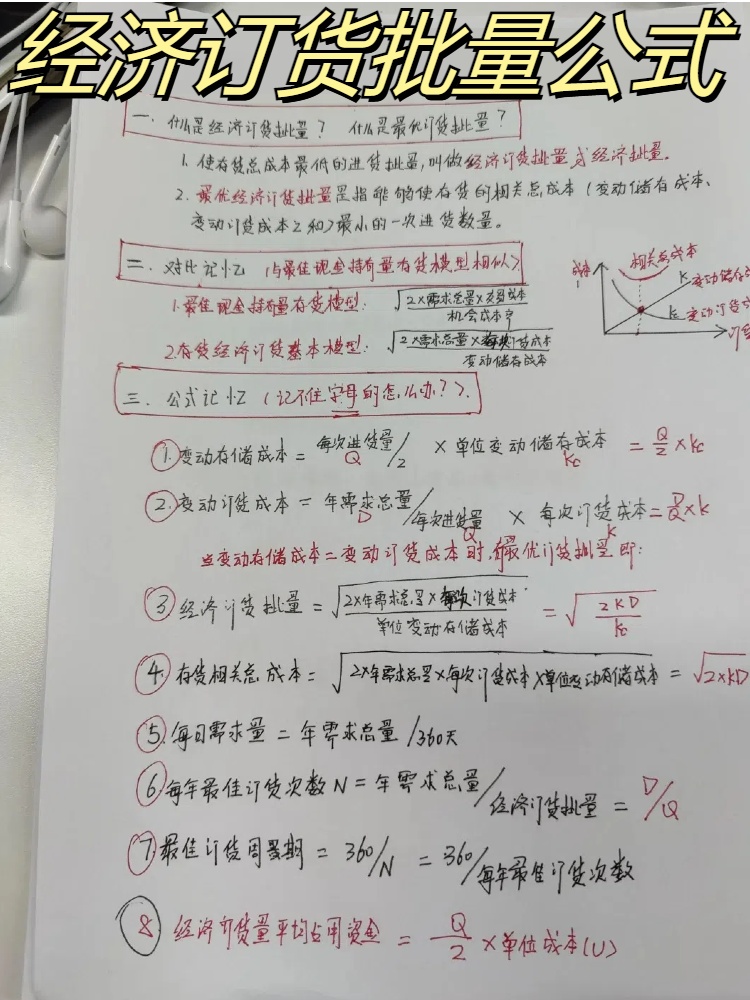 经济订货批量公式
一、什么是经济订货批量？ 什么是最优订货批量？
1. 使存货总成本最低的进货批量，叫做经济订货批量或经济批量。
2. 最优经济订货批量是指能够使存货的相关总成本（变动储存成本、
变动订货成本之和）最小的一次进货数量。
二、对比记忆（与最佳现金持有量存货模型相似）
1.最佳现金持有量存货模型： √2×需求总量×交易成本/机会成本率
2.存货经济订货基本模型： √2×需求总量×每次订货成本/变动储存成本
成本
相关总成本
变动储存
变动订货成
三、公式记忆（记不住字母的怎么办？）
① 变动存储成本 = 每次进货量/2 × 单位变动储存成本 = Q/2 × Kc
Q Kc
② 变动订货成本 = 年需求总量/每次进货量 × 每次订货成本 = D/Q × K
D Q K
当变动存储成本=变动订货成本时，有最优订货批量 即：
③ 经济订货批量 = √2×年需求总量×每次订货成本/单位变动存储成本 = √2KD/Kc
④ 存货相关总成本 = √2×年需求总量×每次订货成本×单位变动存储成本 = √2×KD
⑤ 每日需求量 = 年需求总量/360天
⑥ 每年最佳订货次数N = 年需求总量/经济订货批量 = D/Q
⑦ 最佳订货周期 = 360/N = 360/每年最佳订货次数
⑧ 经济订货量平均占用资金 = Q/2 × 单位成本(U)